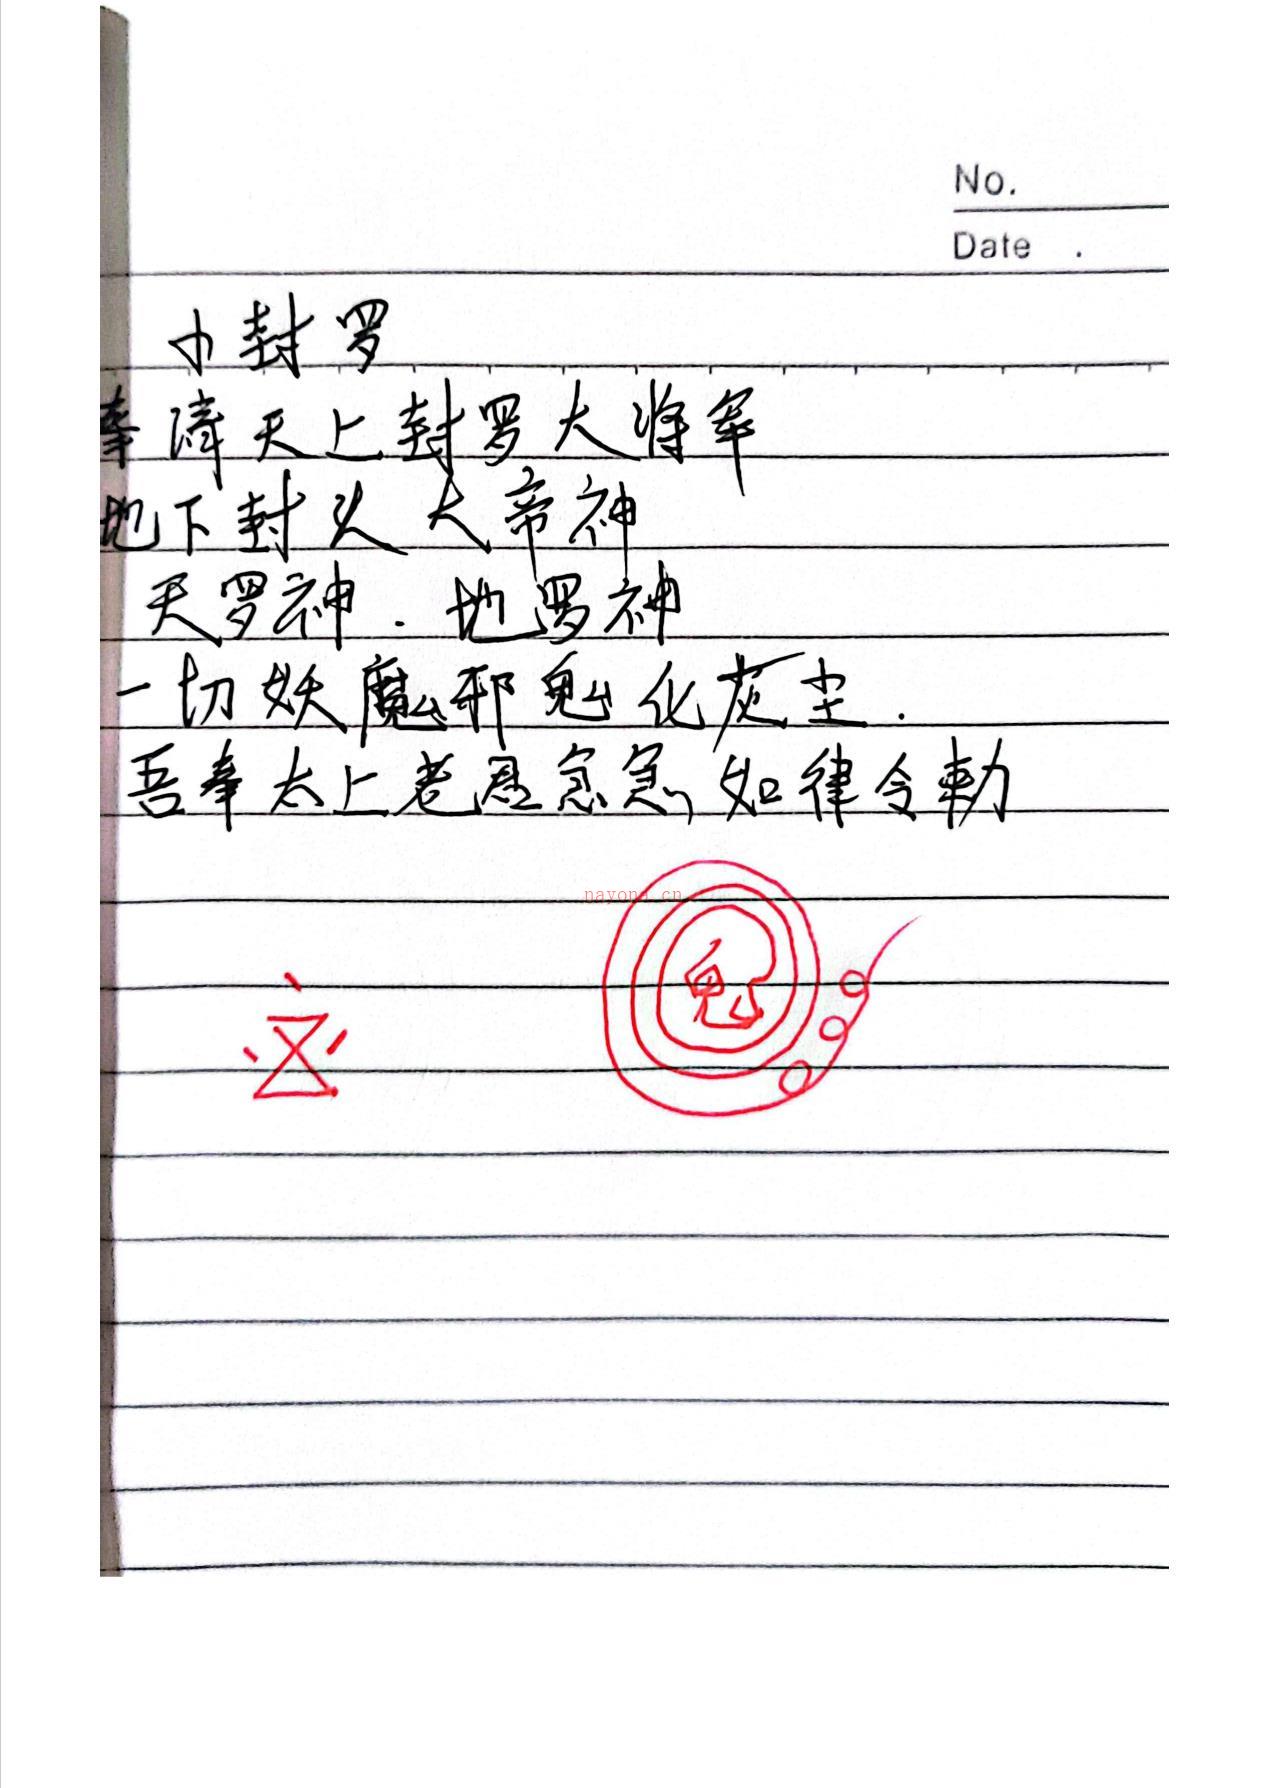 No.
Date .
小封罗
奉请天上封罗大将军
地下封头大帝神
天罗神.地罗神
一切妖魔邪鬼化灰尘.
吾奉太上老君急急如律令勅
nayona.cn
鬼